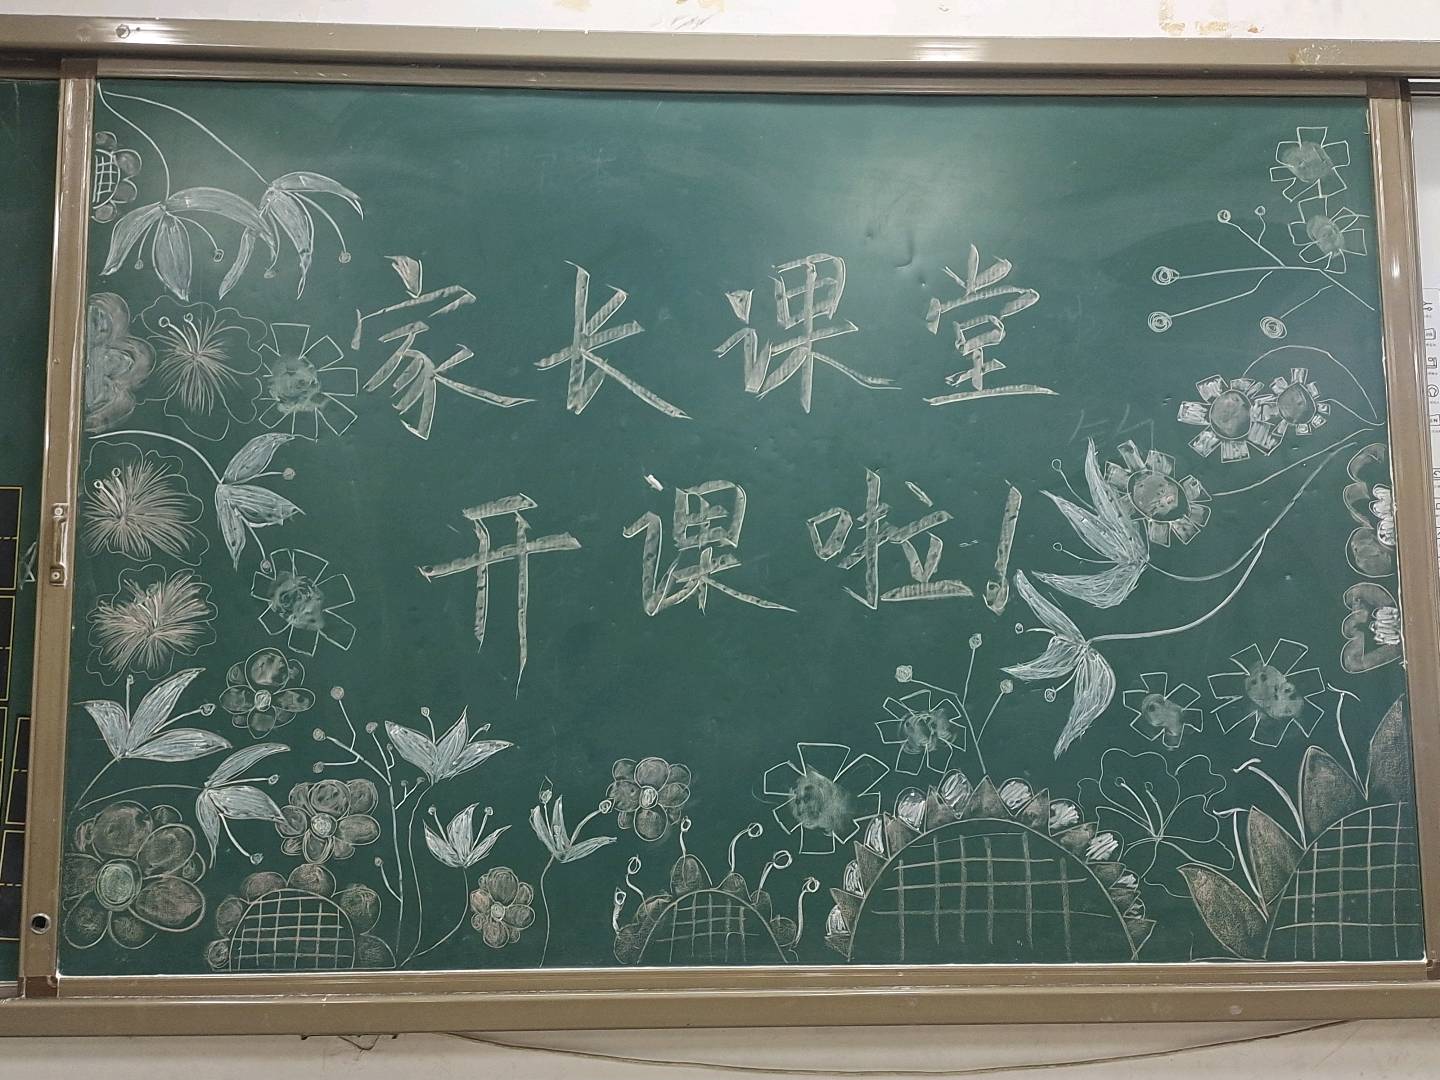 家长课堂
开课啦!